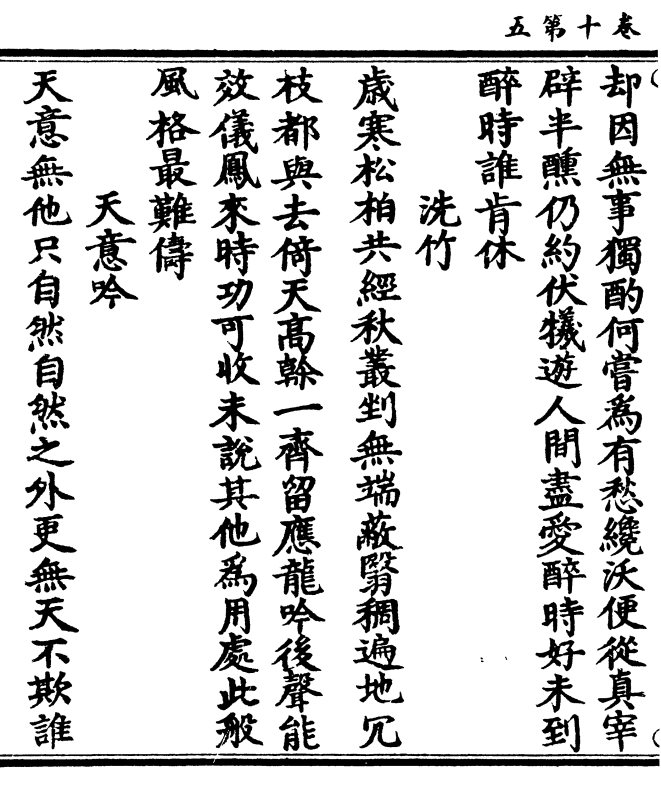 卷十第五
却因無事獨酌何嘗為有愁纔沃便從真宰
辟半醺仍約伏犧遊人間盡愛醉時好未到
醉時誰肯休
洗竹
歳寒松柏共經秋叢剉無端蔽翳稠遍地冗
枝都與去倚天高榦一齊留應龍吟後聲能
效儀鳳來時功可收未說其他為用處此般
風格最難儔
天意吟
天意無他只自然自然之外更無天不欺誰